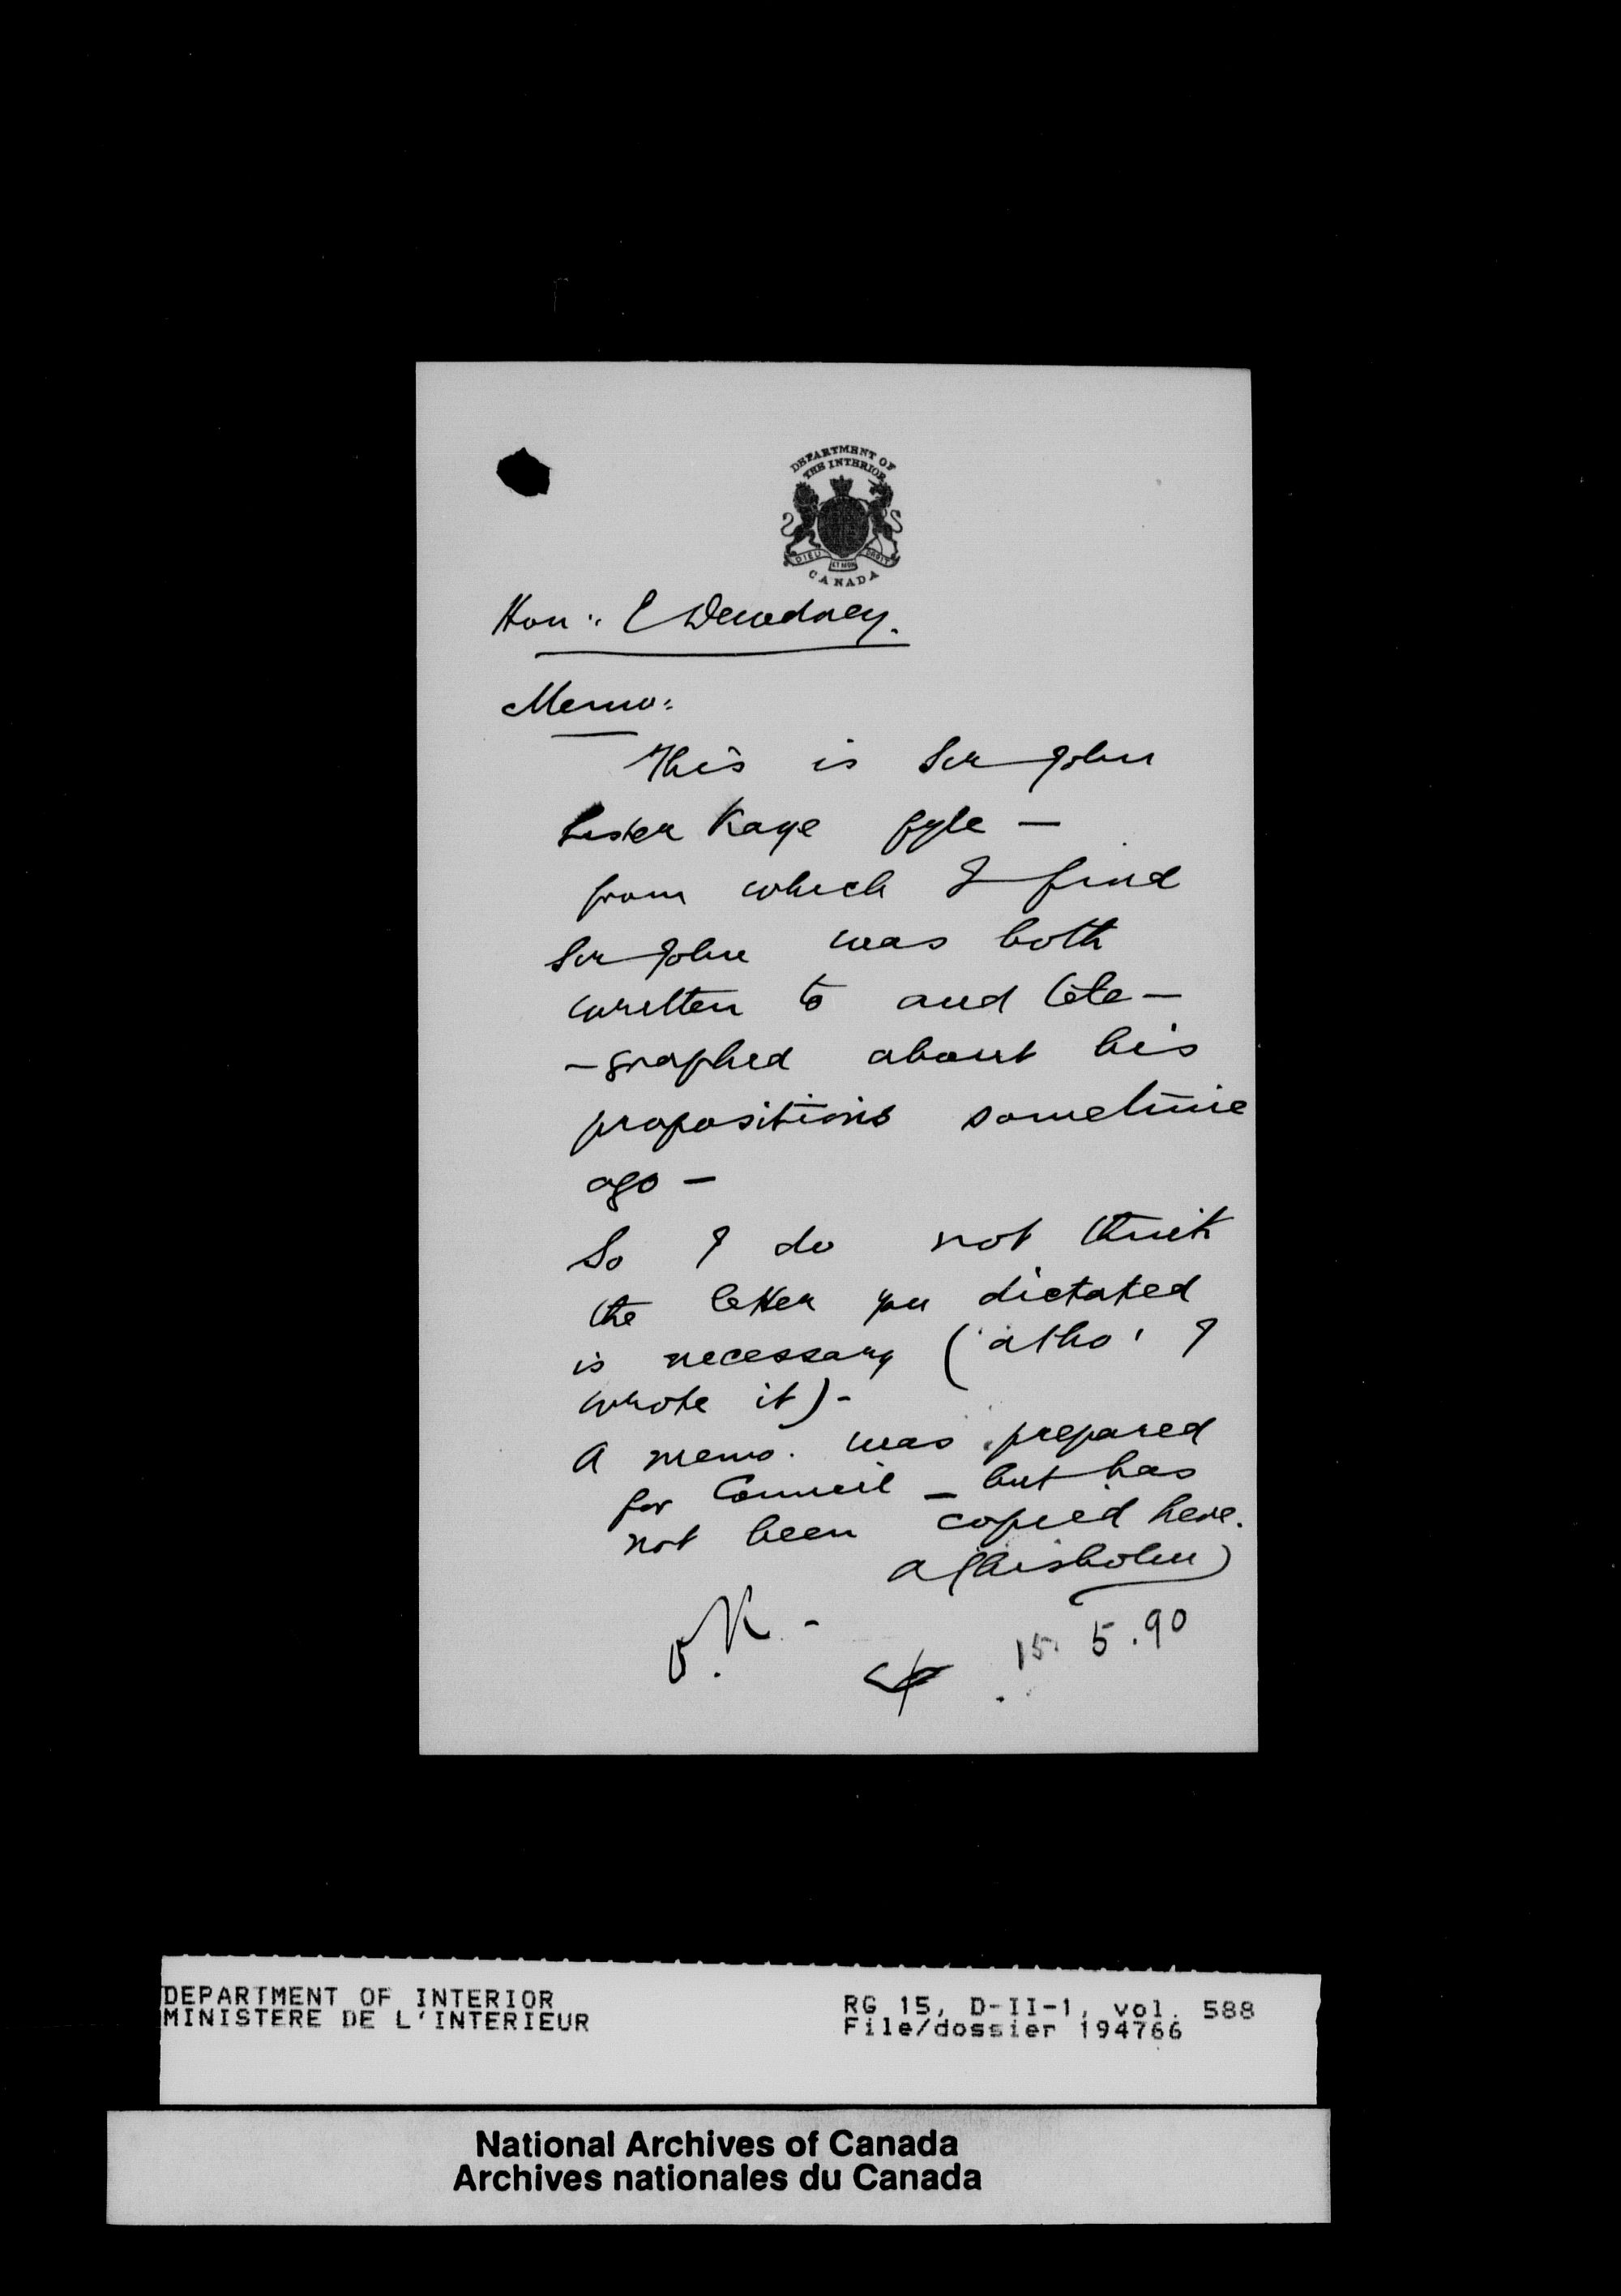 DEPARTMENT OF
THE INTERIOR
DIEU ET MON DROIT
CANADA
Hon: E Dewdney.
Memo:
This is Sir John
Lister Kaye fyle —
from which I find
Sir John was both
written to and tele—
—graphed about his
propositions sometime
ago —
So I do not think
the letter you dictated
is necessary (altho' I
wrote it)-
A memo. was prepared
for Council — but has
not been copied here.
A Chisholm
O.K -
15. 5. 90
DEPARTMENT OF INTERIOR
MINISTERE DE L'INTERIEUR
RG 15, D-II-1, vol. 588
File/dossier 194766
National Archives of Canada
Archives nationales du Canada